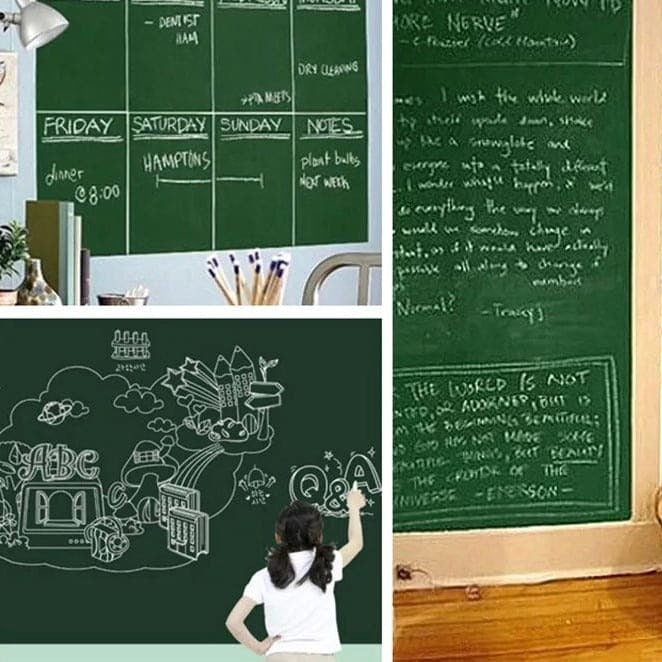 - DENTIST
11AM
DRY CLEANING
PTA MEETS
FRIDAY
SATURDAY
SUNDAY
NOTES
dinner
@8:00
HAMPTONS
plant bulbs
NEXT WEEK
ORE NERVE"
(Cold Mountain)
I wish the whole world
upside down, shake
like a snowglobe and
everyone into a totally different
I wonder what'd happen, if we'd
do everything the way we always
would we somehow change in
as if it would have actually
possible all along to change
Normal?
- Tracy J
THE WORLD IS NOT
OR ADORNED, BUT IS
THE BEGINNING BEAUTIFUL;
GOD HAS NOT MADE SOME
THINGS, BUT BEAUTY
THE CREATOR OF THE
UNIVERSE - EMERSON -
ABC
Q&A